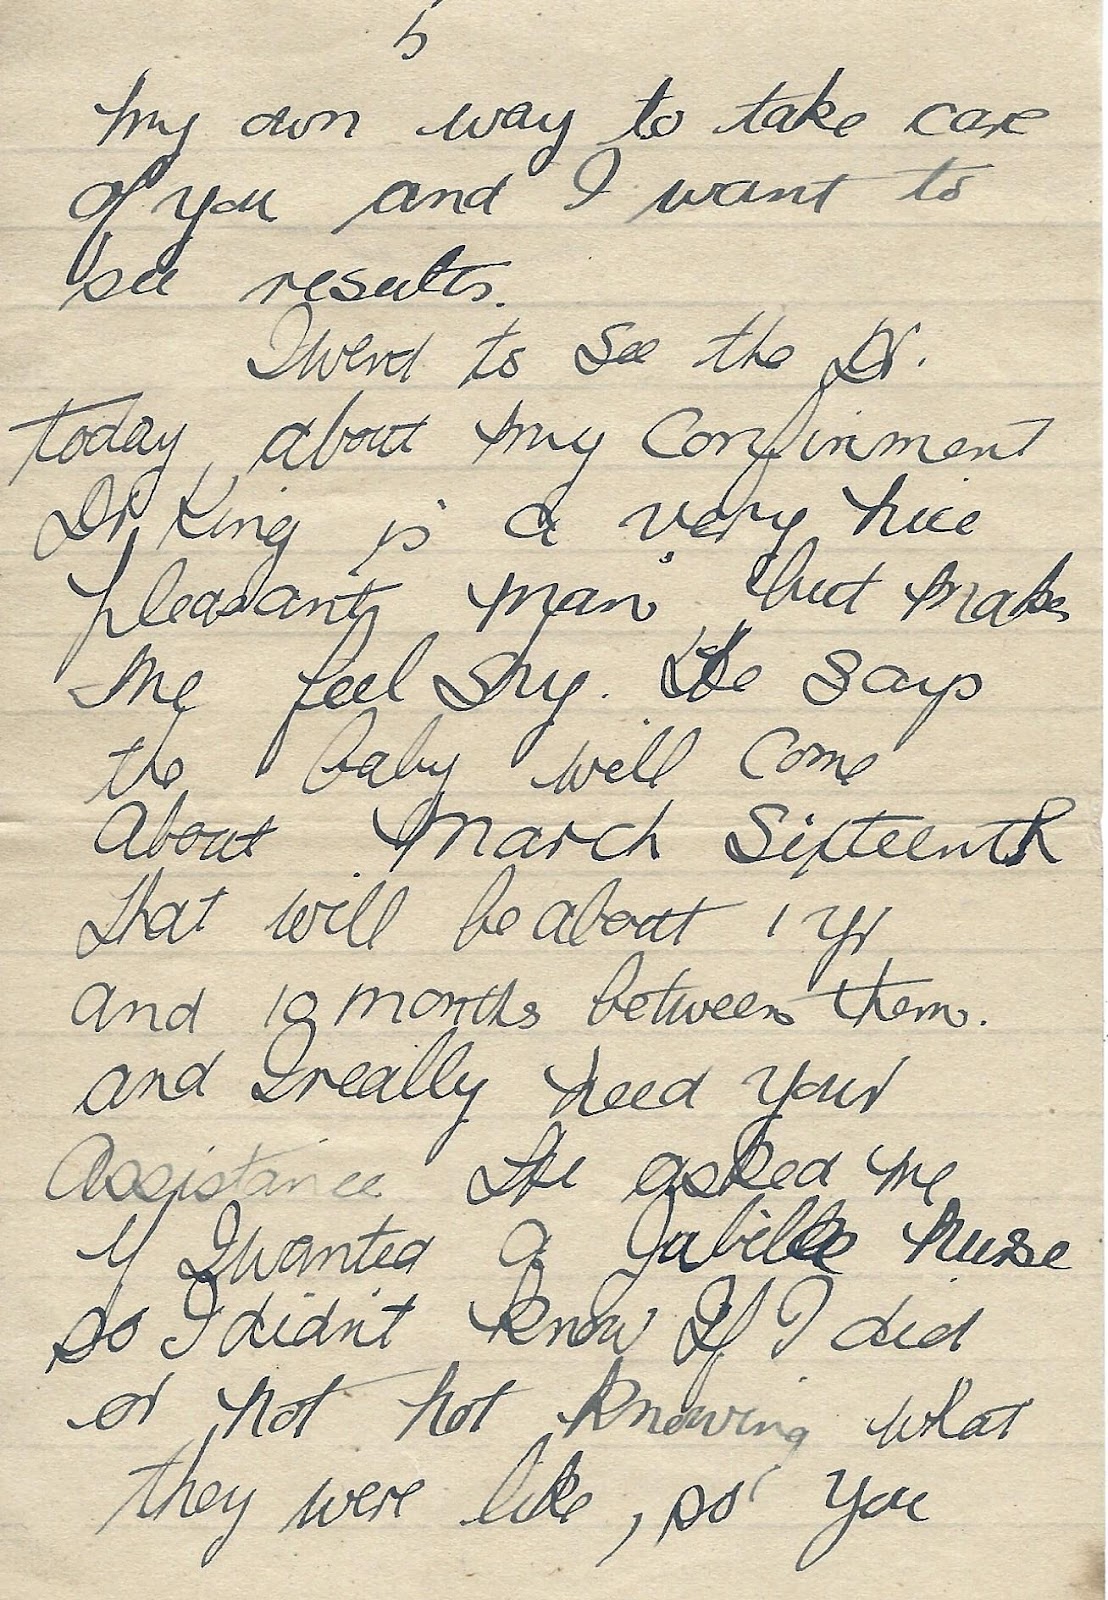 5
my own way to take care
of you and I want to
see results.
I went to see the Dr.
today, about my confinment
Dr King is a very nice
pleasant, man but makes
me feel shy. He says
the baby will come
about March Sixteenth
that will be about 1 yr
and 10 months between them.
and I really need your
Assistance He asked me
if I wanted a Jubilee nurse
so I didn't know If I did
or not not knowing what
they were like, so you